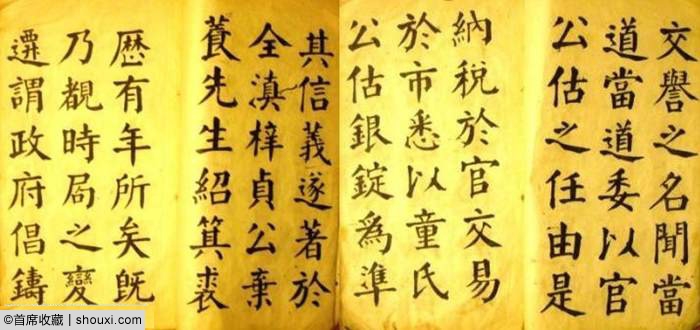 交譽之名聞當
道當道委以官
公估之任由是
納税於官交易
於市悉以童氏
公估銀錠為準
其信義遂著於
全滇梓貞公棄
養先生紹箕裘
歷有年所矣既
乃覩時局之變
遷謂政府倡鑄
©首席收藏 | shouxi.com